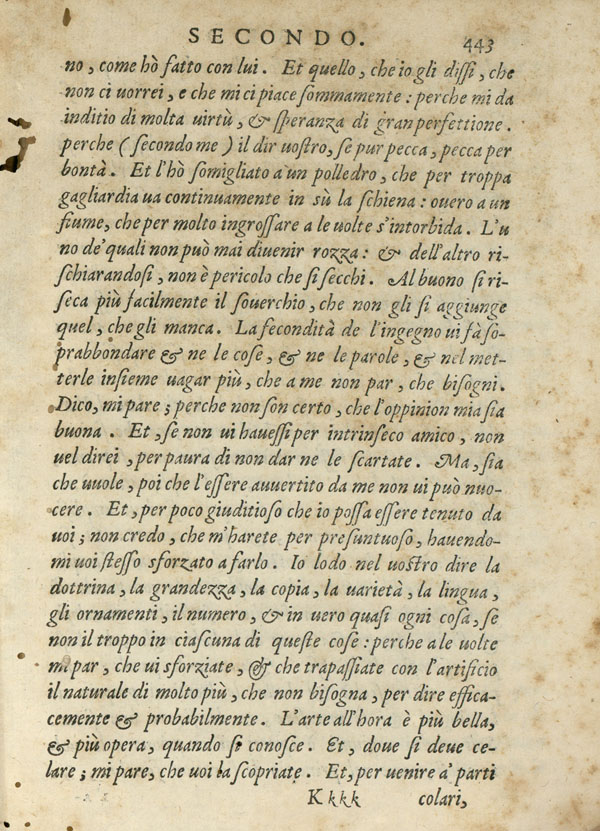 SECONDO. 443
no, come hò fatto con lui. Et quello, che io gli dissi, che
non ci uorrei, e che mi ci piace sommamente: perche mi da
inditio di molta uirtù, & speranza di gran perfettione.
perche (secondo me) il dir uostro, se pur pecca, pecca per
bontà. Et l'hò somigliato a un polledro, che per troppa
gagliardia ua continuamente in sù la schiena: ouero a un
fiume, che per molto ingrossare a le uolte s'intorbida. L'u
no de' quali non può mai diuenir rozza: & dell'altro ri-
schiarandosi, non è pericolo che si secchi. Al buono si ri-
seca più facilmente il souerchio, che non gli si aggiunge
quel, che gli manca. La fecondità de l'ingegno ui fà so-
prabbondare & ne le cose, & ne le parole, & nel met-
terle insieme uagar più, che a me non par, che bisogni.
Dico, mi pare; perche non son certo, che l'oppinion mia sia
buona. Et, se non ui hauessi per intrinseco amico, non
uel direi, per paura di non dar ne le scartate. Ma, sia
che uuole, poi che l'essere auuertito da me non ui può nuo-
cere. Et, per poco giuditioso che io possa essere tenuto da
uoi; non credo, che m'harete per presuntuoso, hauendo-
mi uoi stesso sforzato a farlo. Io lodo nel uostro dire la
dottrina, la grandezza, la copia, la uarietà, la lingua,
gli ornamenti, il numero, & in uero quasi ogni cosa, se
non il troppo in ciascuna di queste cose: perche a le uolte
mi par, che ui sforziate, & che trapassiate con l'artificio
il naturale di molto più, che non bisogna, per dire effica-
cemente & probabilmente. L'arte all'hora è più bella,
& più opera, quando si conosce. Et, doue si deue ce-
lare; mi pare, che uoi la scopriate. Et, per uenire a' parti
K kkk colari,